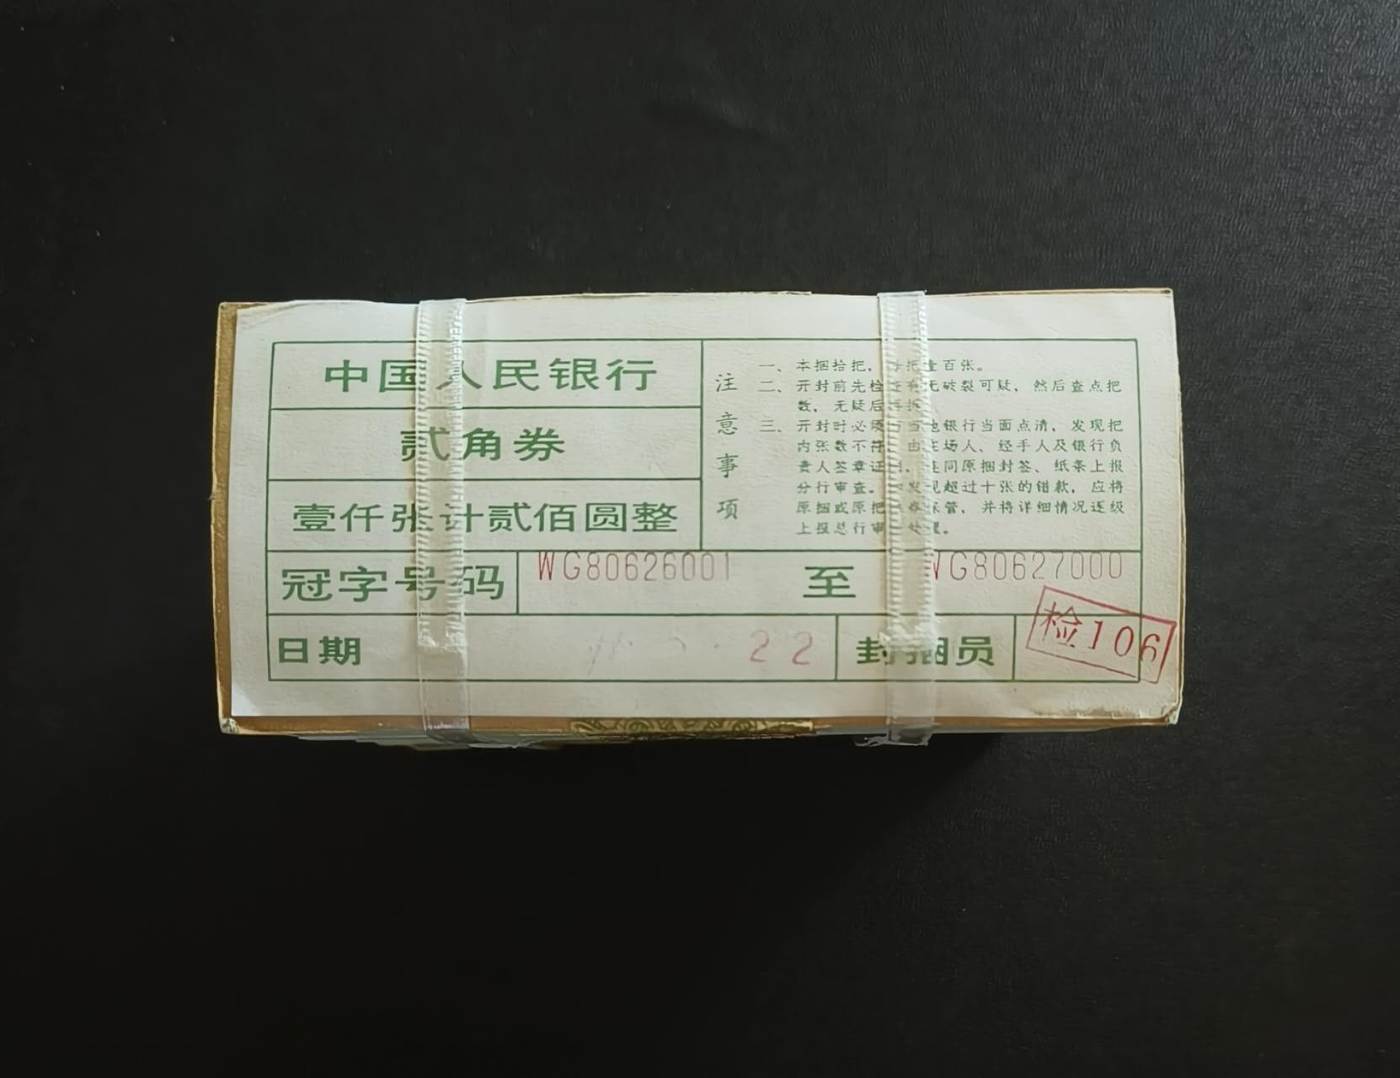 中国人民银行
贰角券
壹仟张计贰佰圆整
注意事项
一、本捆拾把,每把壹百张。
二、开封前先检查有无破裂可疑,然后查点把
数,无疑后再拆
三、开封时必须 当地银行当面点清,发现把
内张数不符,由在场人、经手人及银行负
责人签章证明,连同原捆封签、纸条上报
分行审查。如发现超过十张的错款,应将
原捆或原把 保管,并将详细情况逐级
上报总行审 处理。
冠字号码 WG80626001 至 WG80627000
日期 22 封捆员 检106